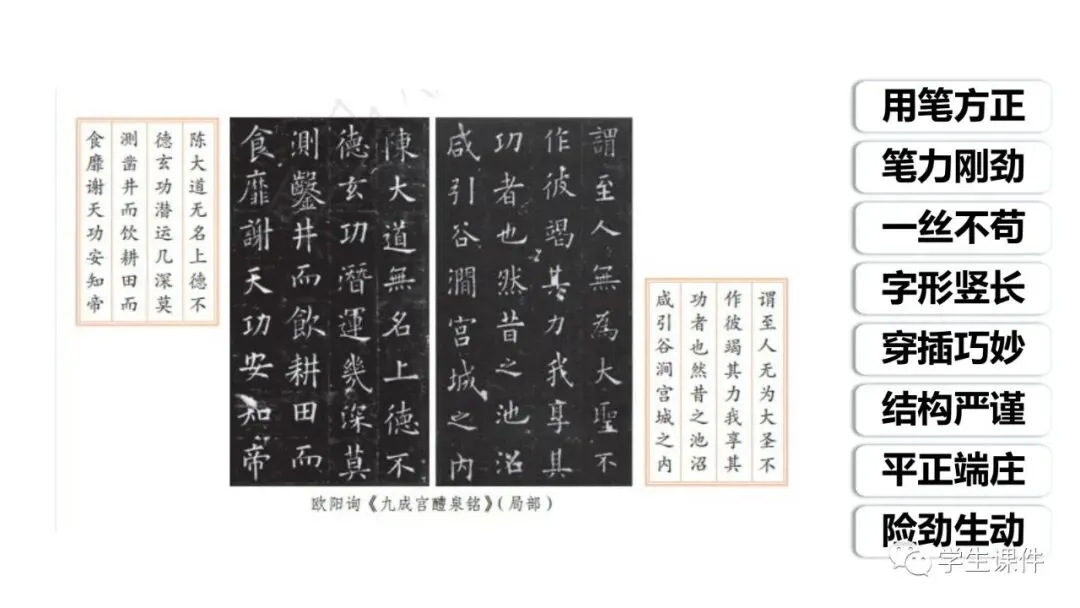 谓至人无为大圣不
作彼竭其力我享其
功者也然昔之池沼
咸引谷涧宫城之内
謂至人無為大聖不
作彼竭其力我享其
功者也然昔之池沼
咸引谷澗宫城之内
陳大道無名上德不
德玄功潛運幾深莫
測鑿井而飲耕田而
食靡謝天功安知帝
陈大道无名上德不
德玄功潜运几深莫
测凿井而饮耕田而
食靡谢天功安知帝
欧阳询《九成宫醴泉铭》(局部)
用笔方正
笔力刚劲
一丝不苟
字形竖长
穿插巧妙
结构严谨
平正端庄
险劲生动
学生课件